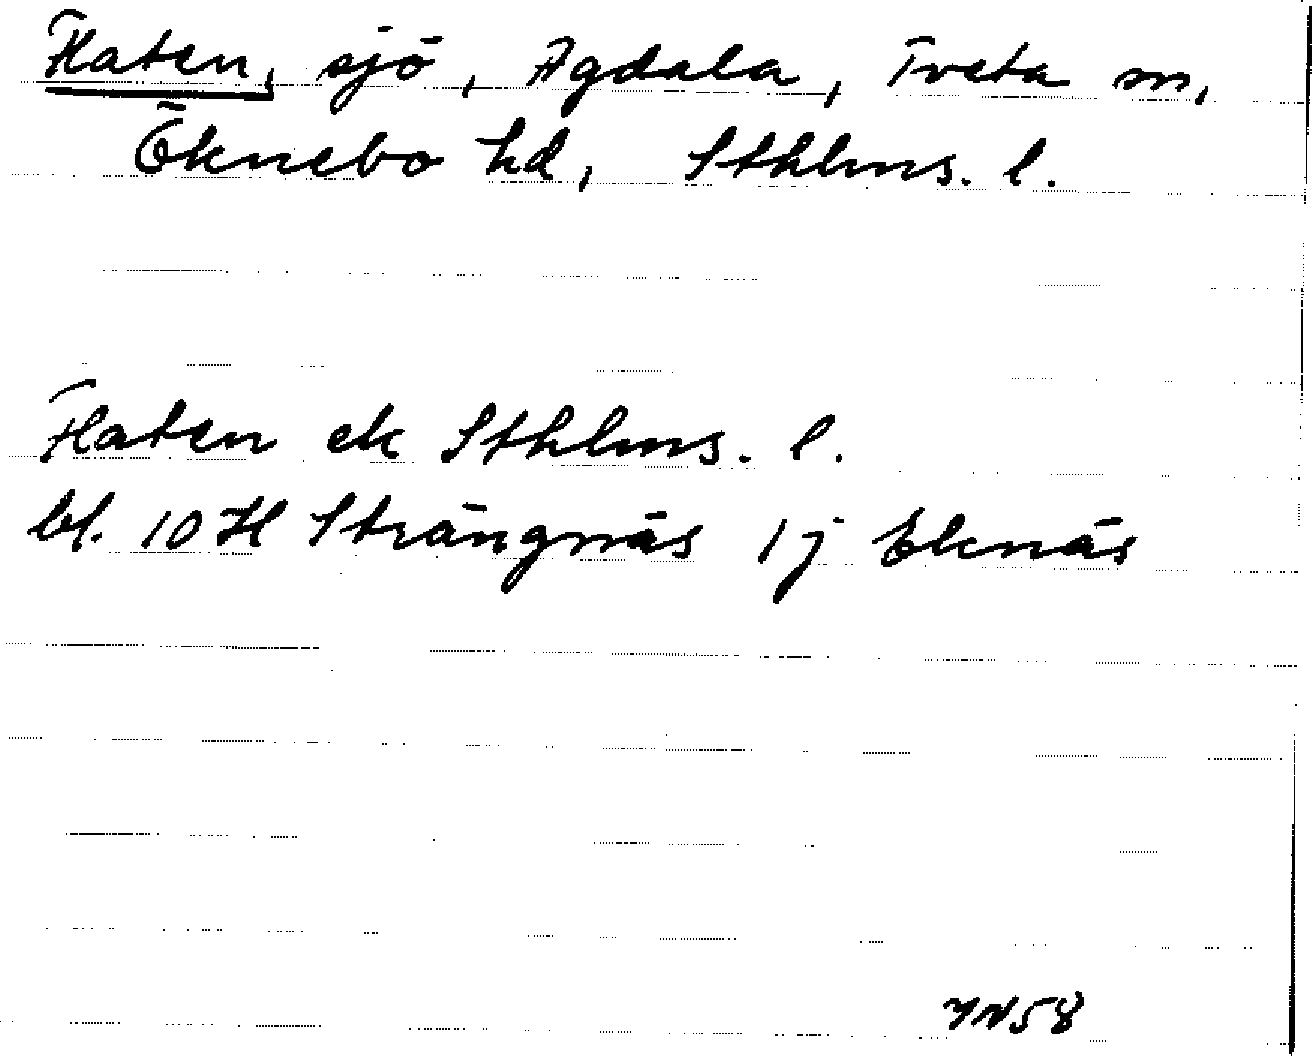 Flaten, sjö, Agdala, Tveta sn,
Öknebo hd, Sthlms. l.
Flaten ek Sthlms. l.
bl. 10 H Strängnäs 1j Eknäs
YN58